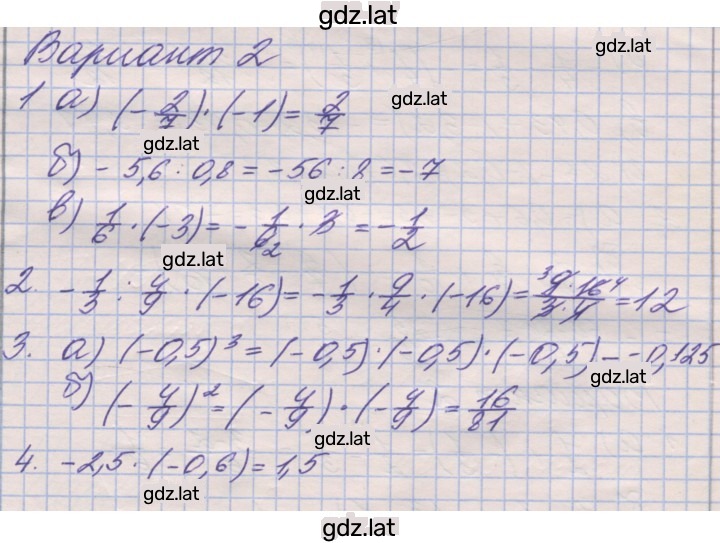 gdz.lat
Вариант 2
gdz.lat
1 а) (-2/7)·(-1)=2/7
gdz.lat
gdz.lat
б) - 5,6 : 0,8 = -56 : 8 = -7
gdz.lat
в) 1/6 · (-3) = - 1/6 2 · 3 = - 1/2
gdz.lat
2. - 1/3 : 4/9 · (-16) = - 1/3 · 9/4 · (-16) = 3 9·16 4/3·4 = 12
3. а) (-0,5)³ = (-0,5)·(-0,5)·(-0,5) = -0,125
gdz.lat
б) (- 4/9)² = (- 4/9) · (- 4/9) = 16/81
gdz.lat
4. -2,5 · (-0,6) = 1,5
gdz.lat
gdz.lat